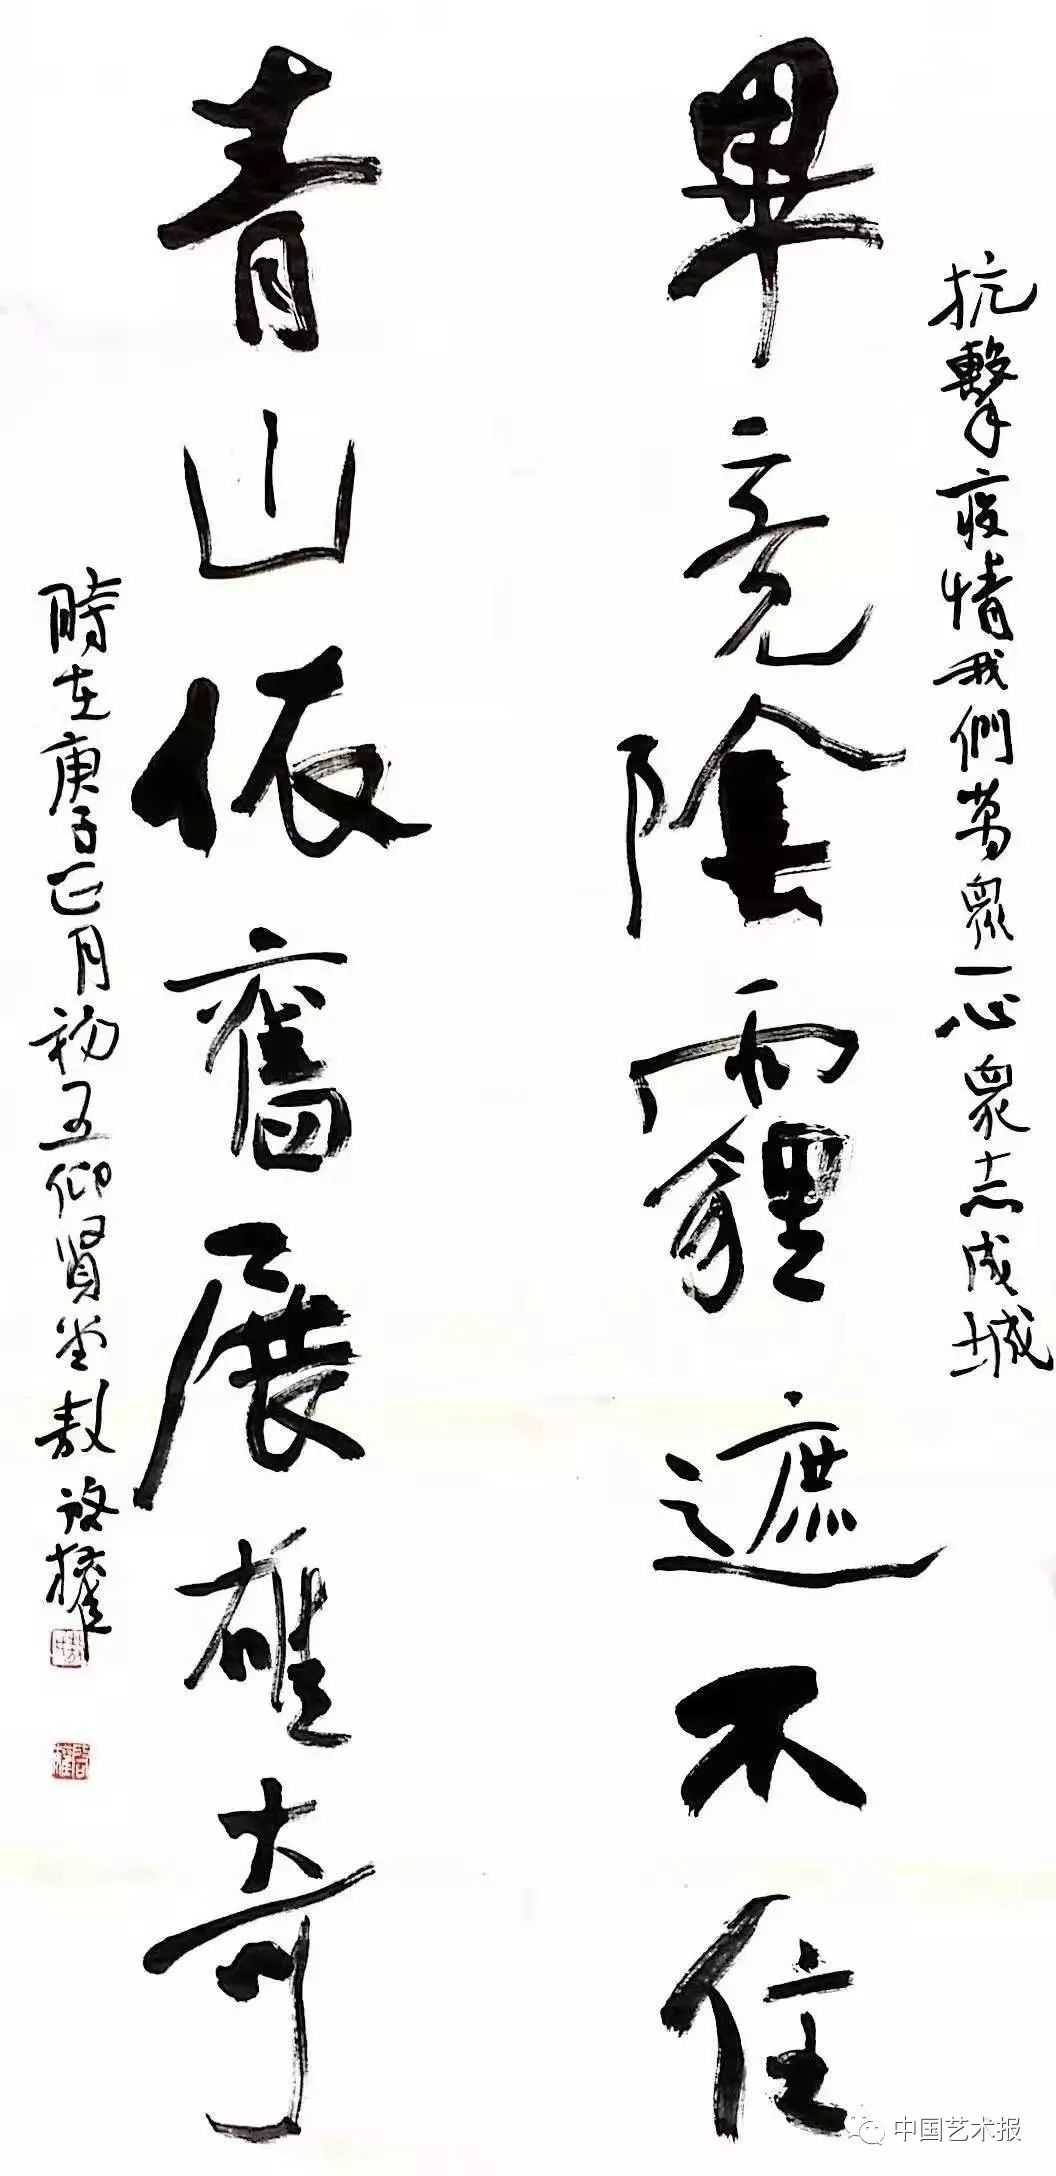 抗擊疫情我們萬眾一心眾志成城
畢竟陰霾遮不住
青山依舊展雄奇
時在庚子正月初五仰賢堂敖啟權
中国艺术报